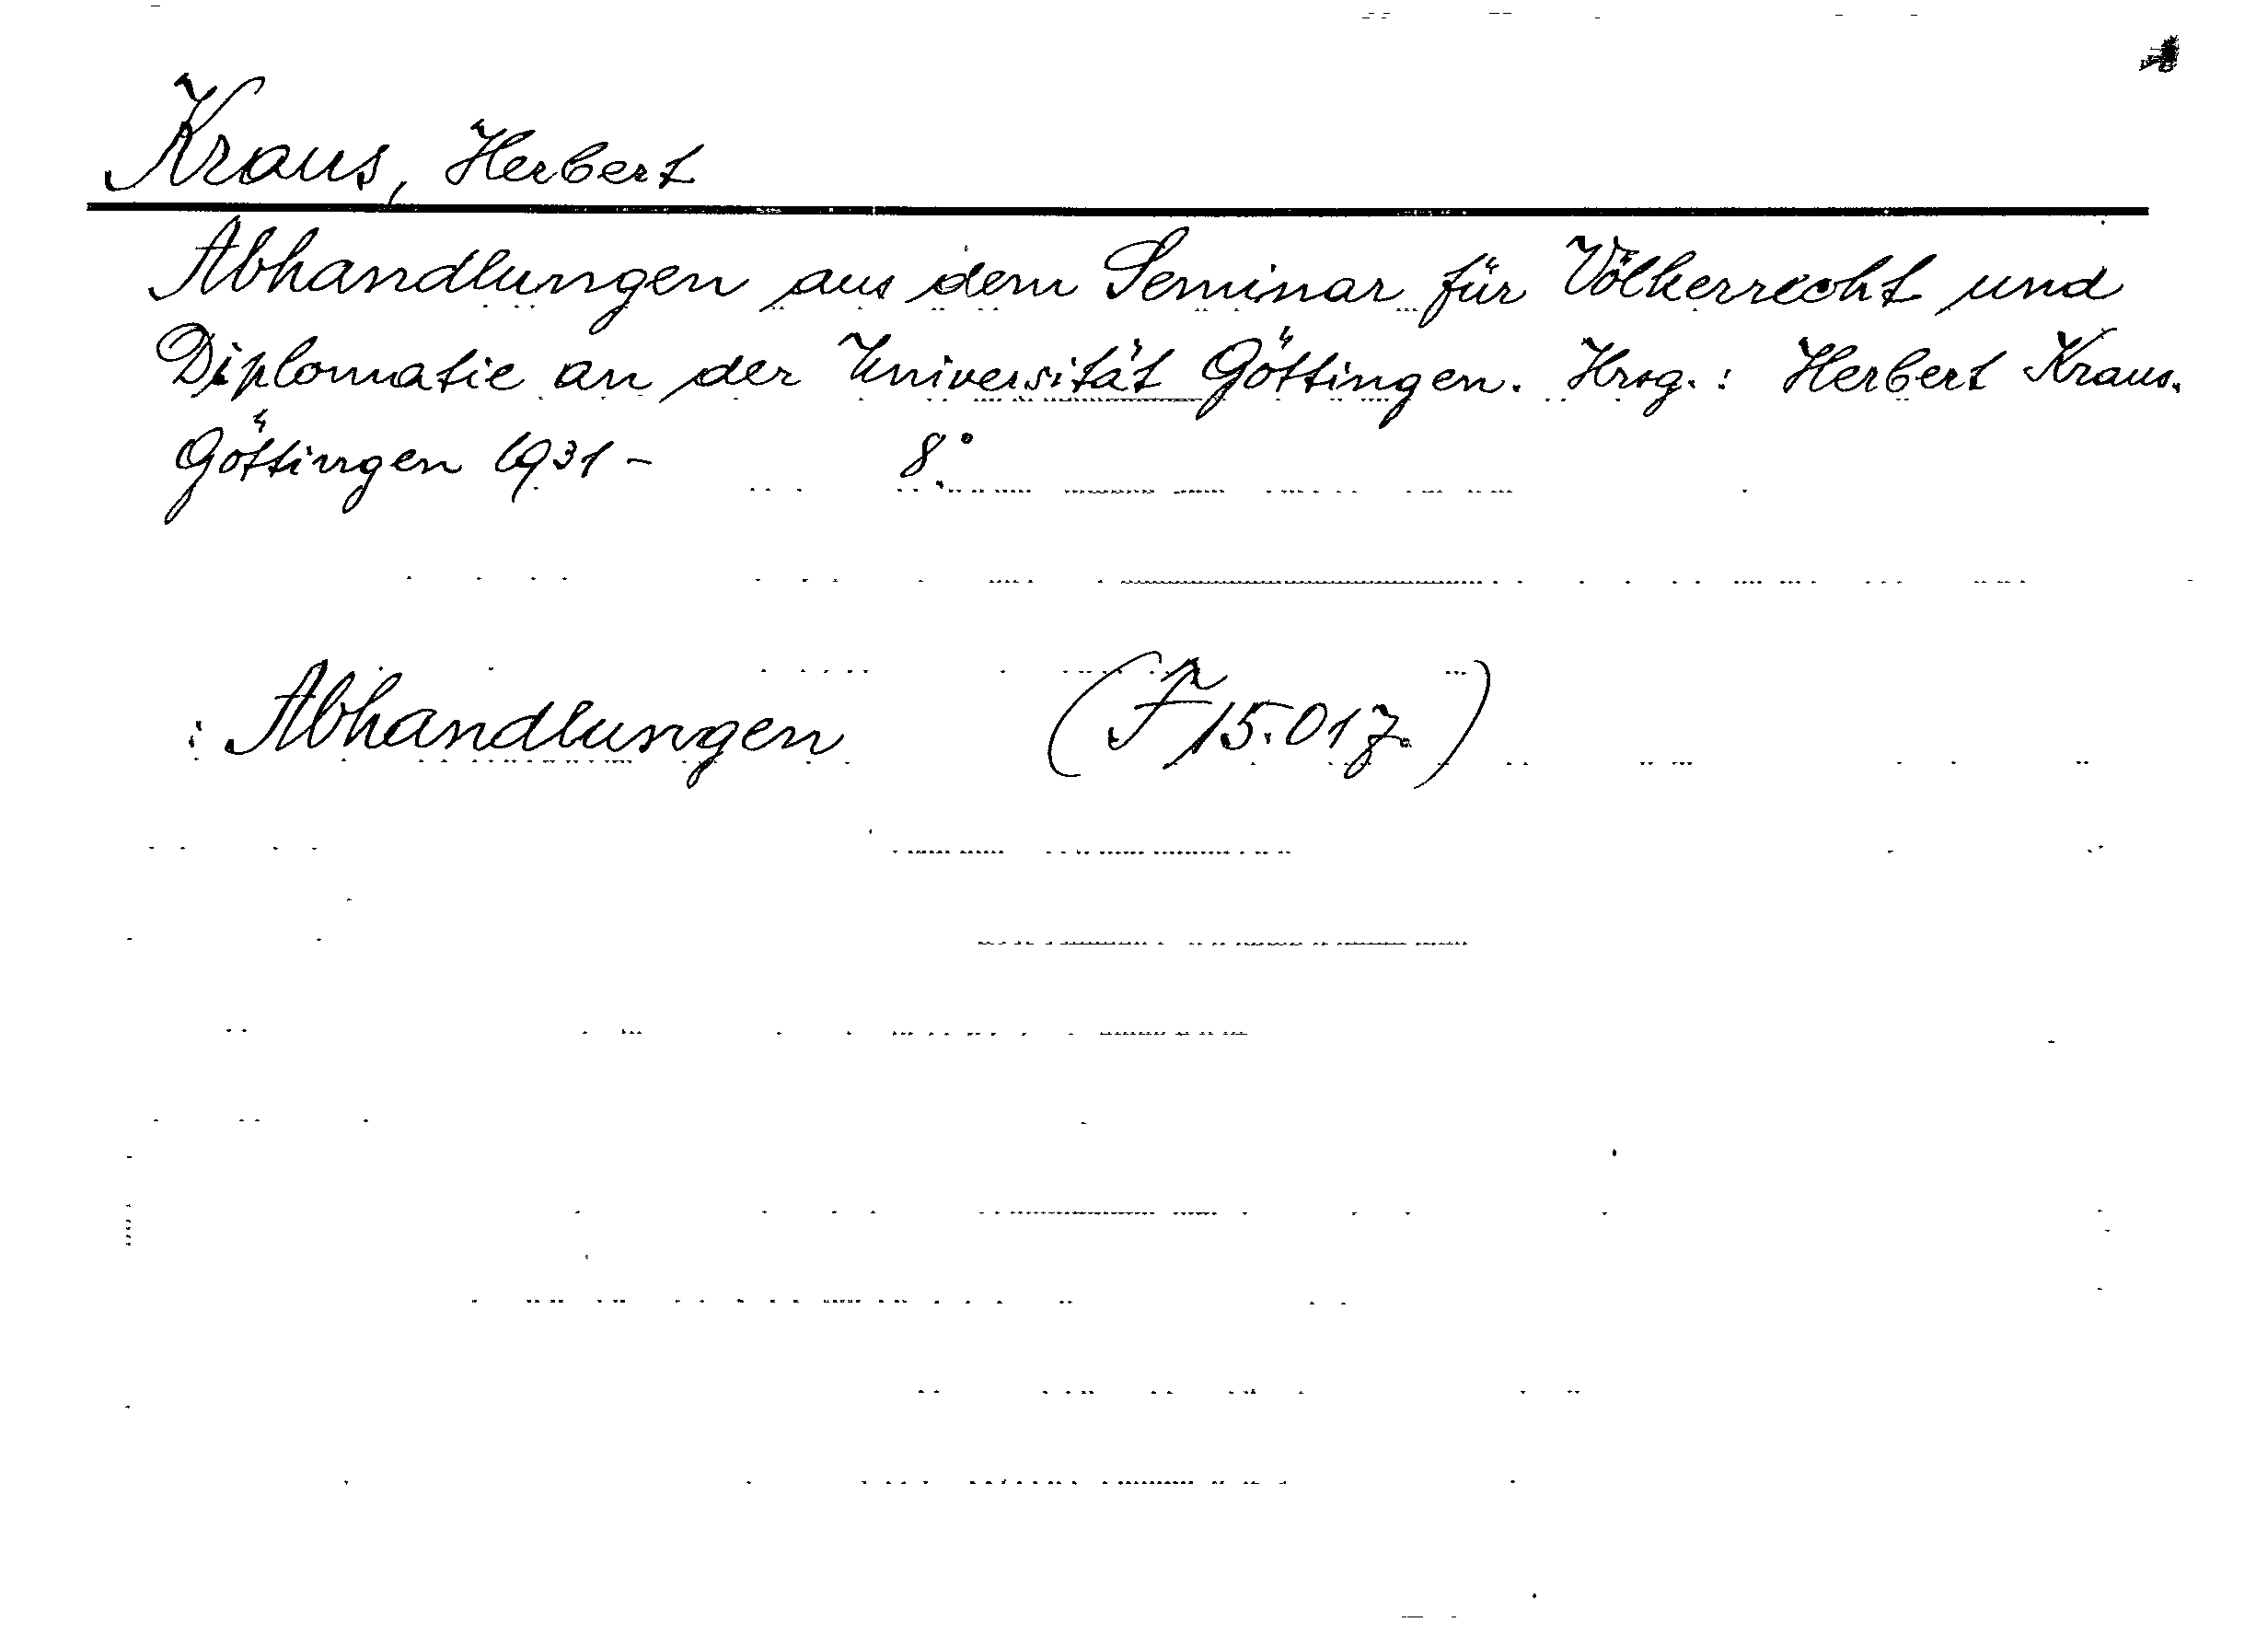 Kraus, Herbert
Abhandlungen aus dem Seminar für Völkerrecht und
Diplomatie an der Universität Göttingen. Hrsg.: Herbert Kraus.
Göttingen 1931 - 8°
: Abhandlungen (F 15.017.)